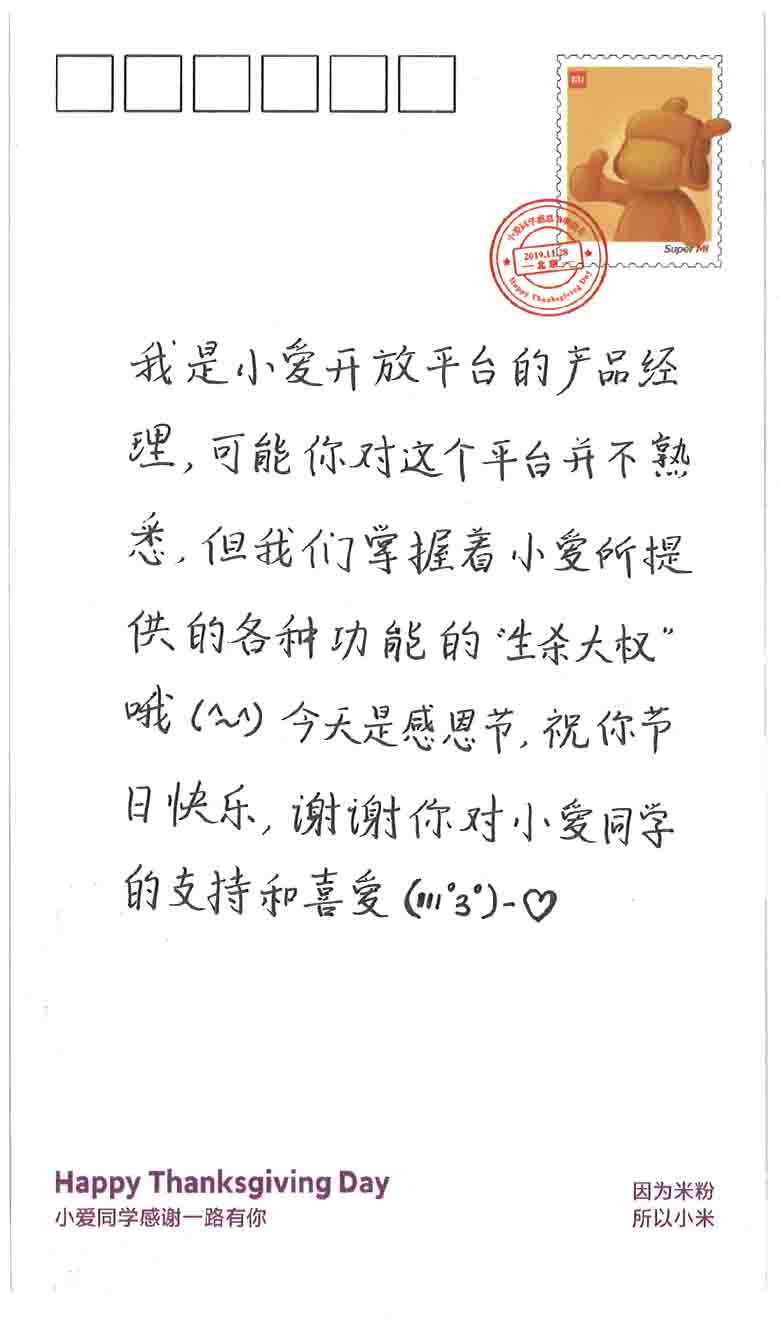 Super MI
2019.11.28
北京
Happy Thanksgiving Day
我是小爱开放平台的产品经
理,可能你对这个平台并不熟
悉,但我们掌握着小爱所提
供的各种功能的“生杀大权”
哦(^~^)今天是感恩节,祝你节
日快乐,谢谢你对小爱同学
的支持和喜爱(′′′°3°)-♡
Happy Thanksgiving Day
小爱同学感谢一路有你
因为米粉
所以小米